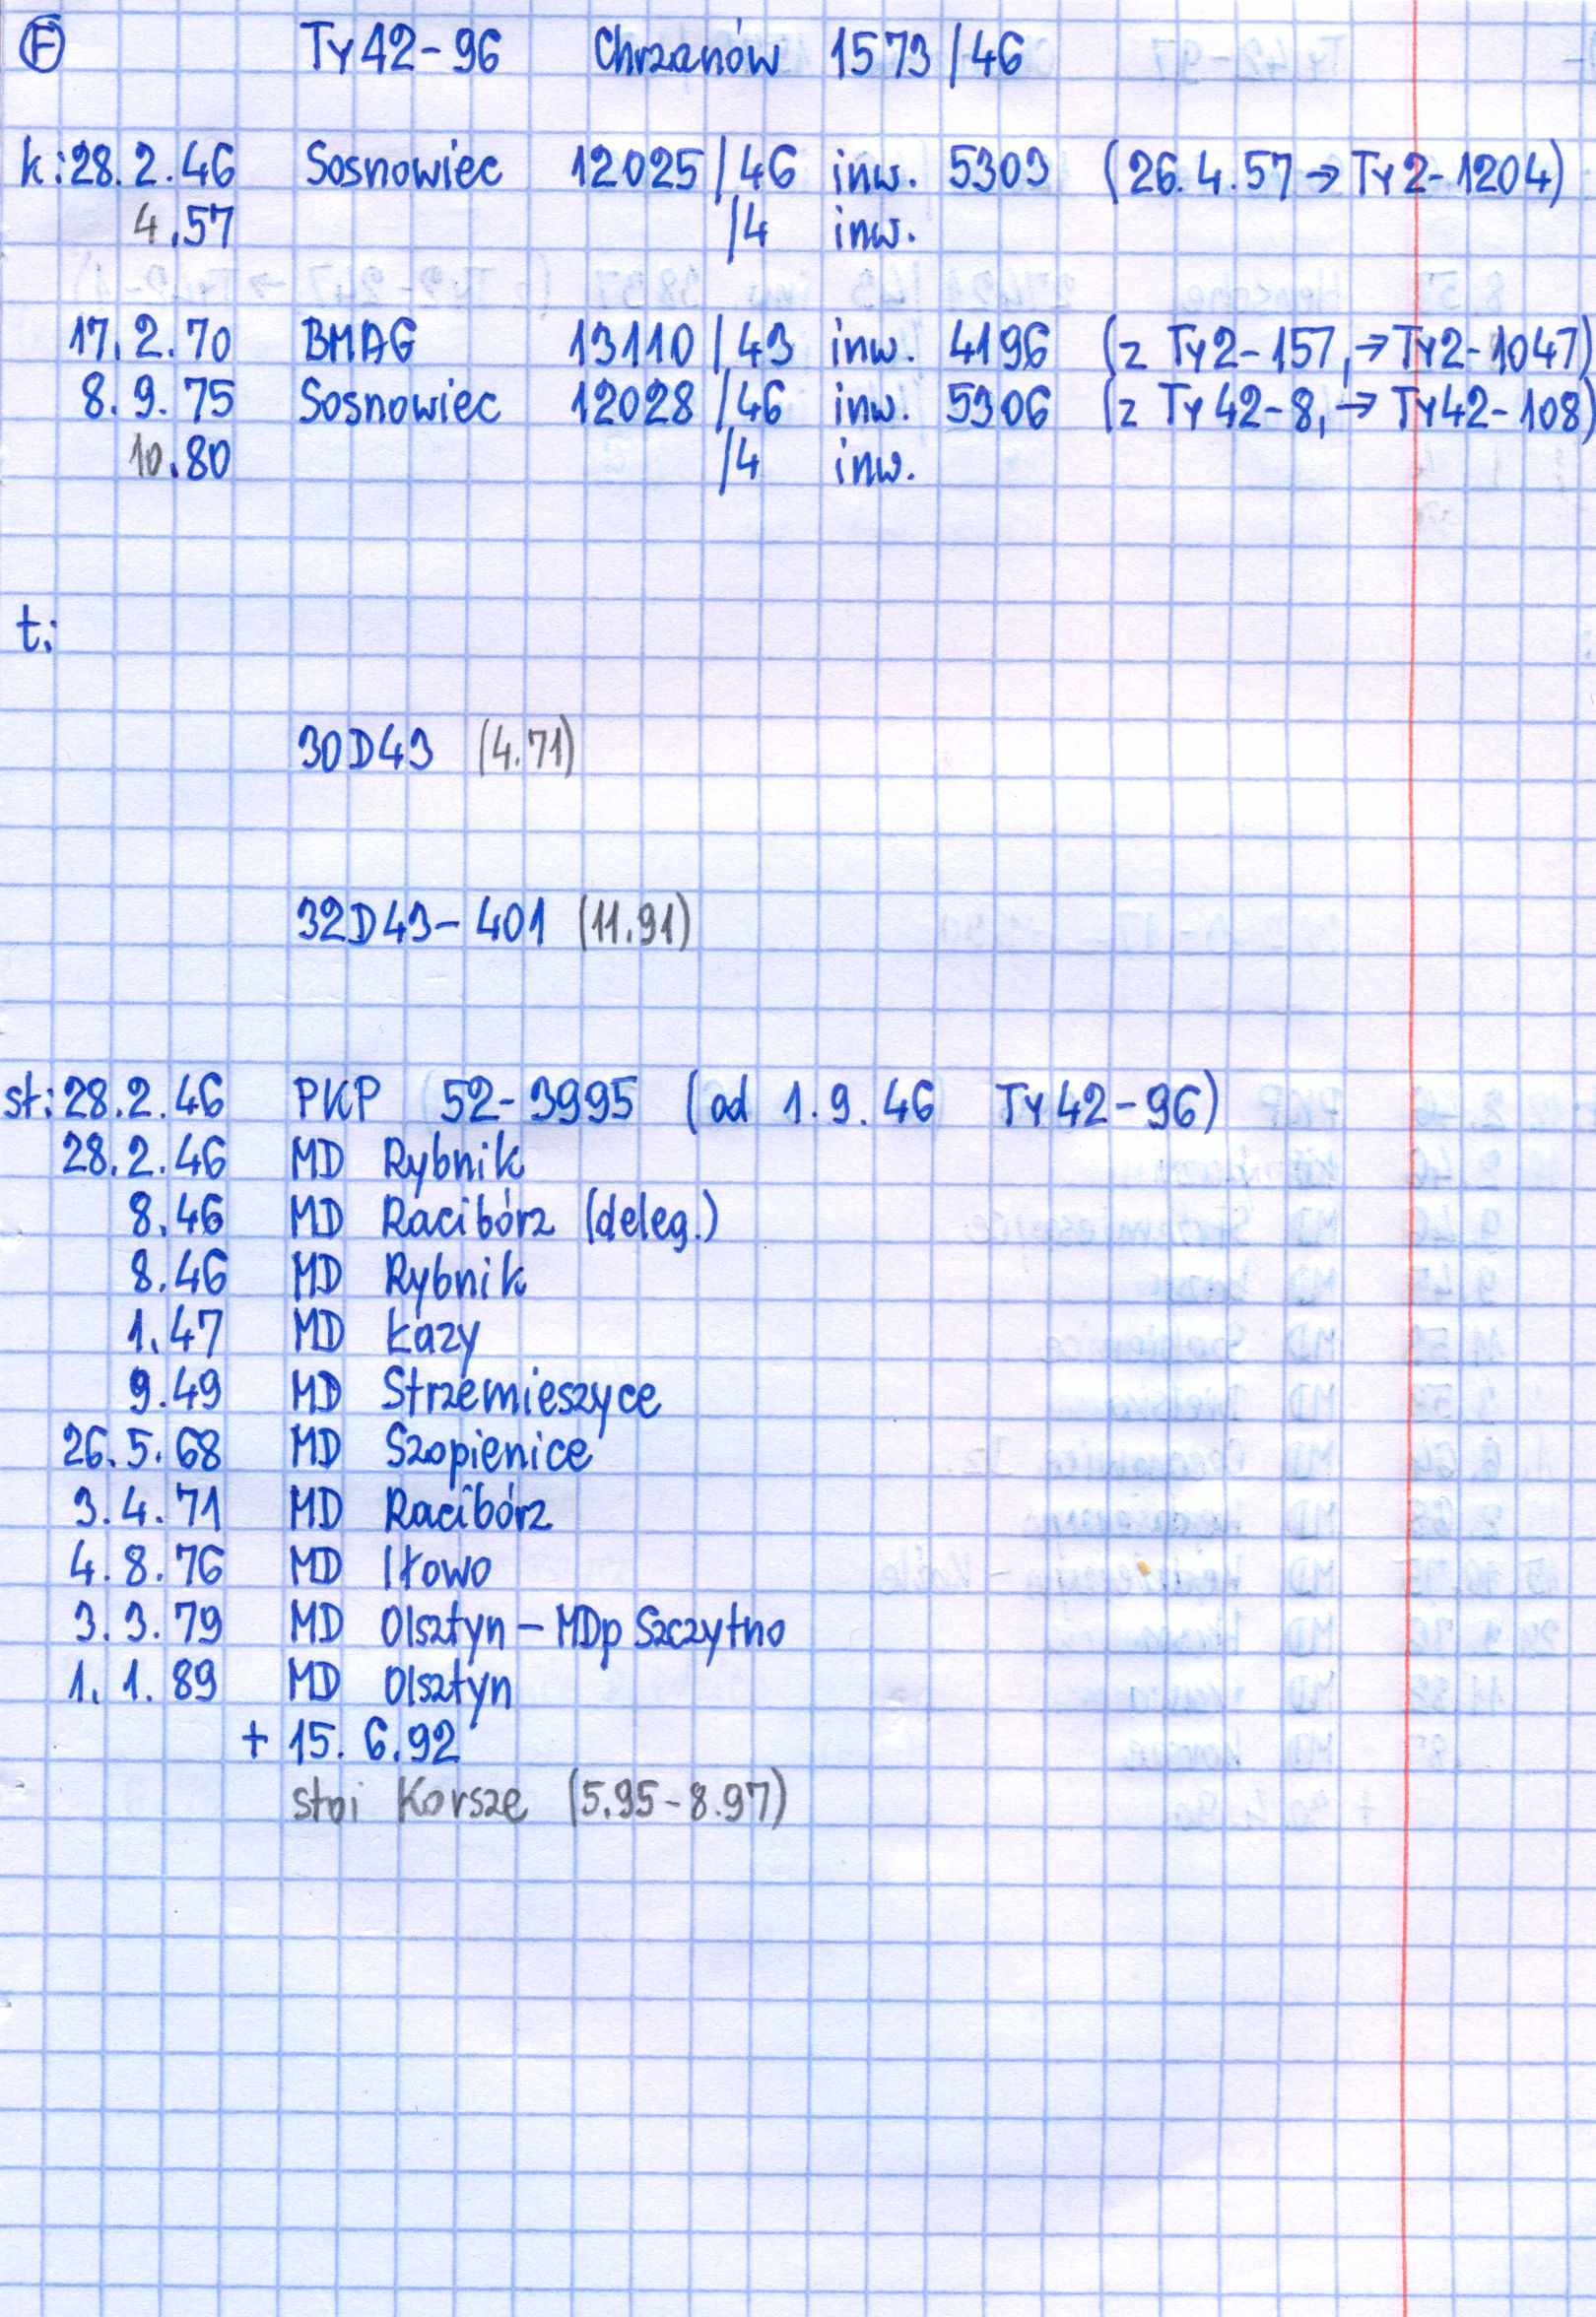 F Ty42-96 Chrzanów 1573/46
k: 28.2.46 Sosnowiec 12025/46 inw. 5303 (26.4.57 → Ty2-1204)
4.57 /4 inw.
17.2.70 BMAG 13110/43 inw. 4196 (z Ty2-157, → Ty2-1047)
8.9.75 Sosnowiec 12028/46 inw. 5306 (z Ty42-8, → Ty42-108)
10.80 /4 inw.
t:
30D43 (4.71)
32D43-401 (11.91)
st: 28.2.46 PKP 52-3995 (od 1.9.46 Ty42-96)
28.2.46 MD Rybnik
8.46 MD Racibórz (deleg.)
8.46 MD Rybnik
1.47 MD Łazy
9.49 MD Strzemieszyce
26.5.68 MD Szopienice
3.4.71 MD Racibórz
4.8.76 MD Iłowo
3.3.79 MD Olsztyn - MDp Szczytno
1.1.89 MD Olsztyn
+ 15.6.92
stoi Korsze (5.95-8.97)